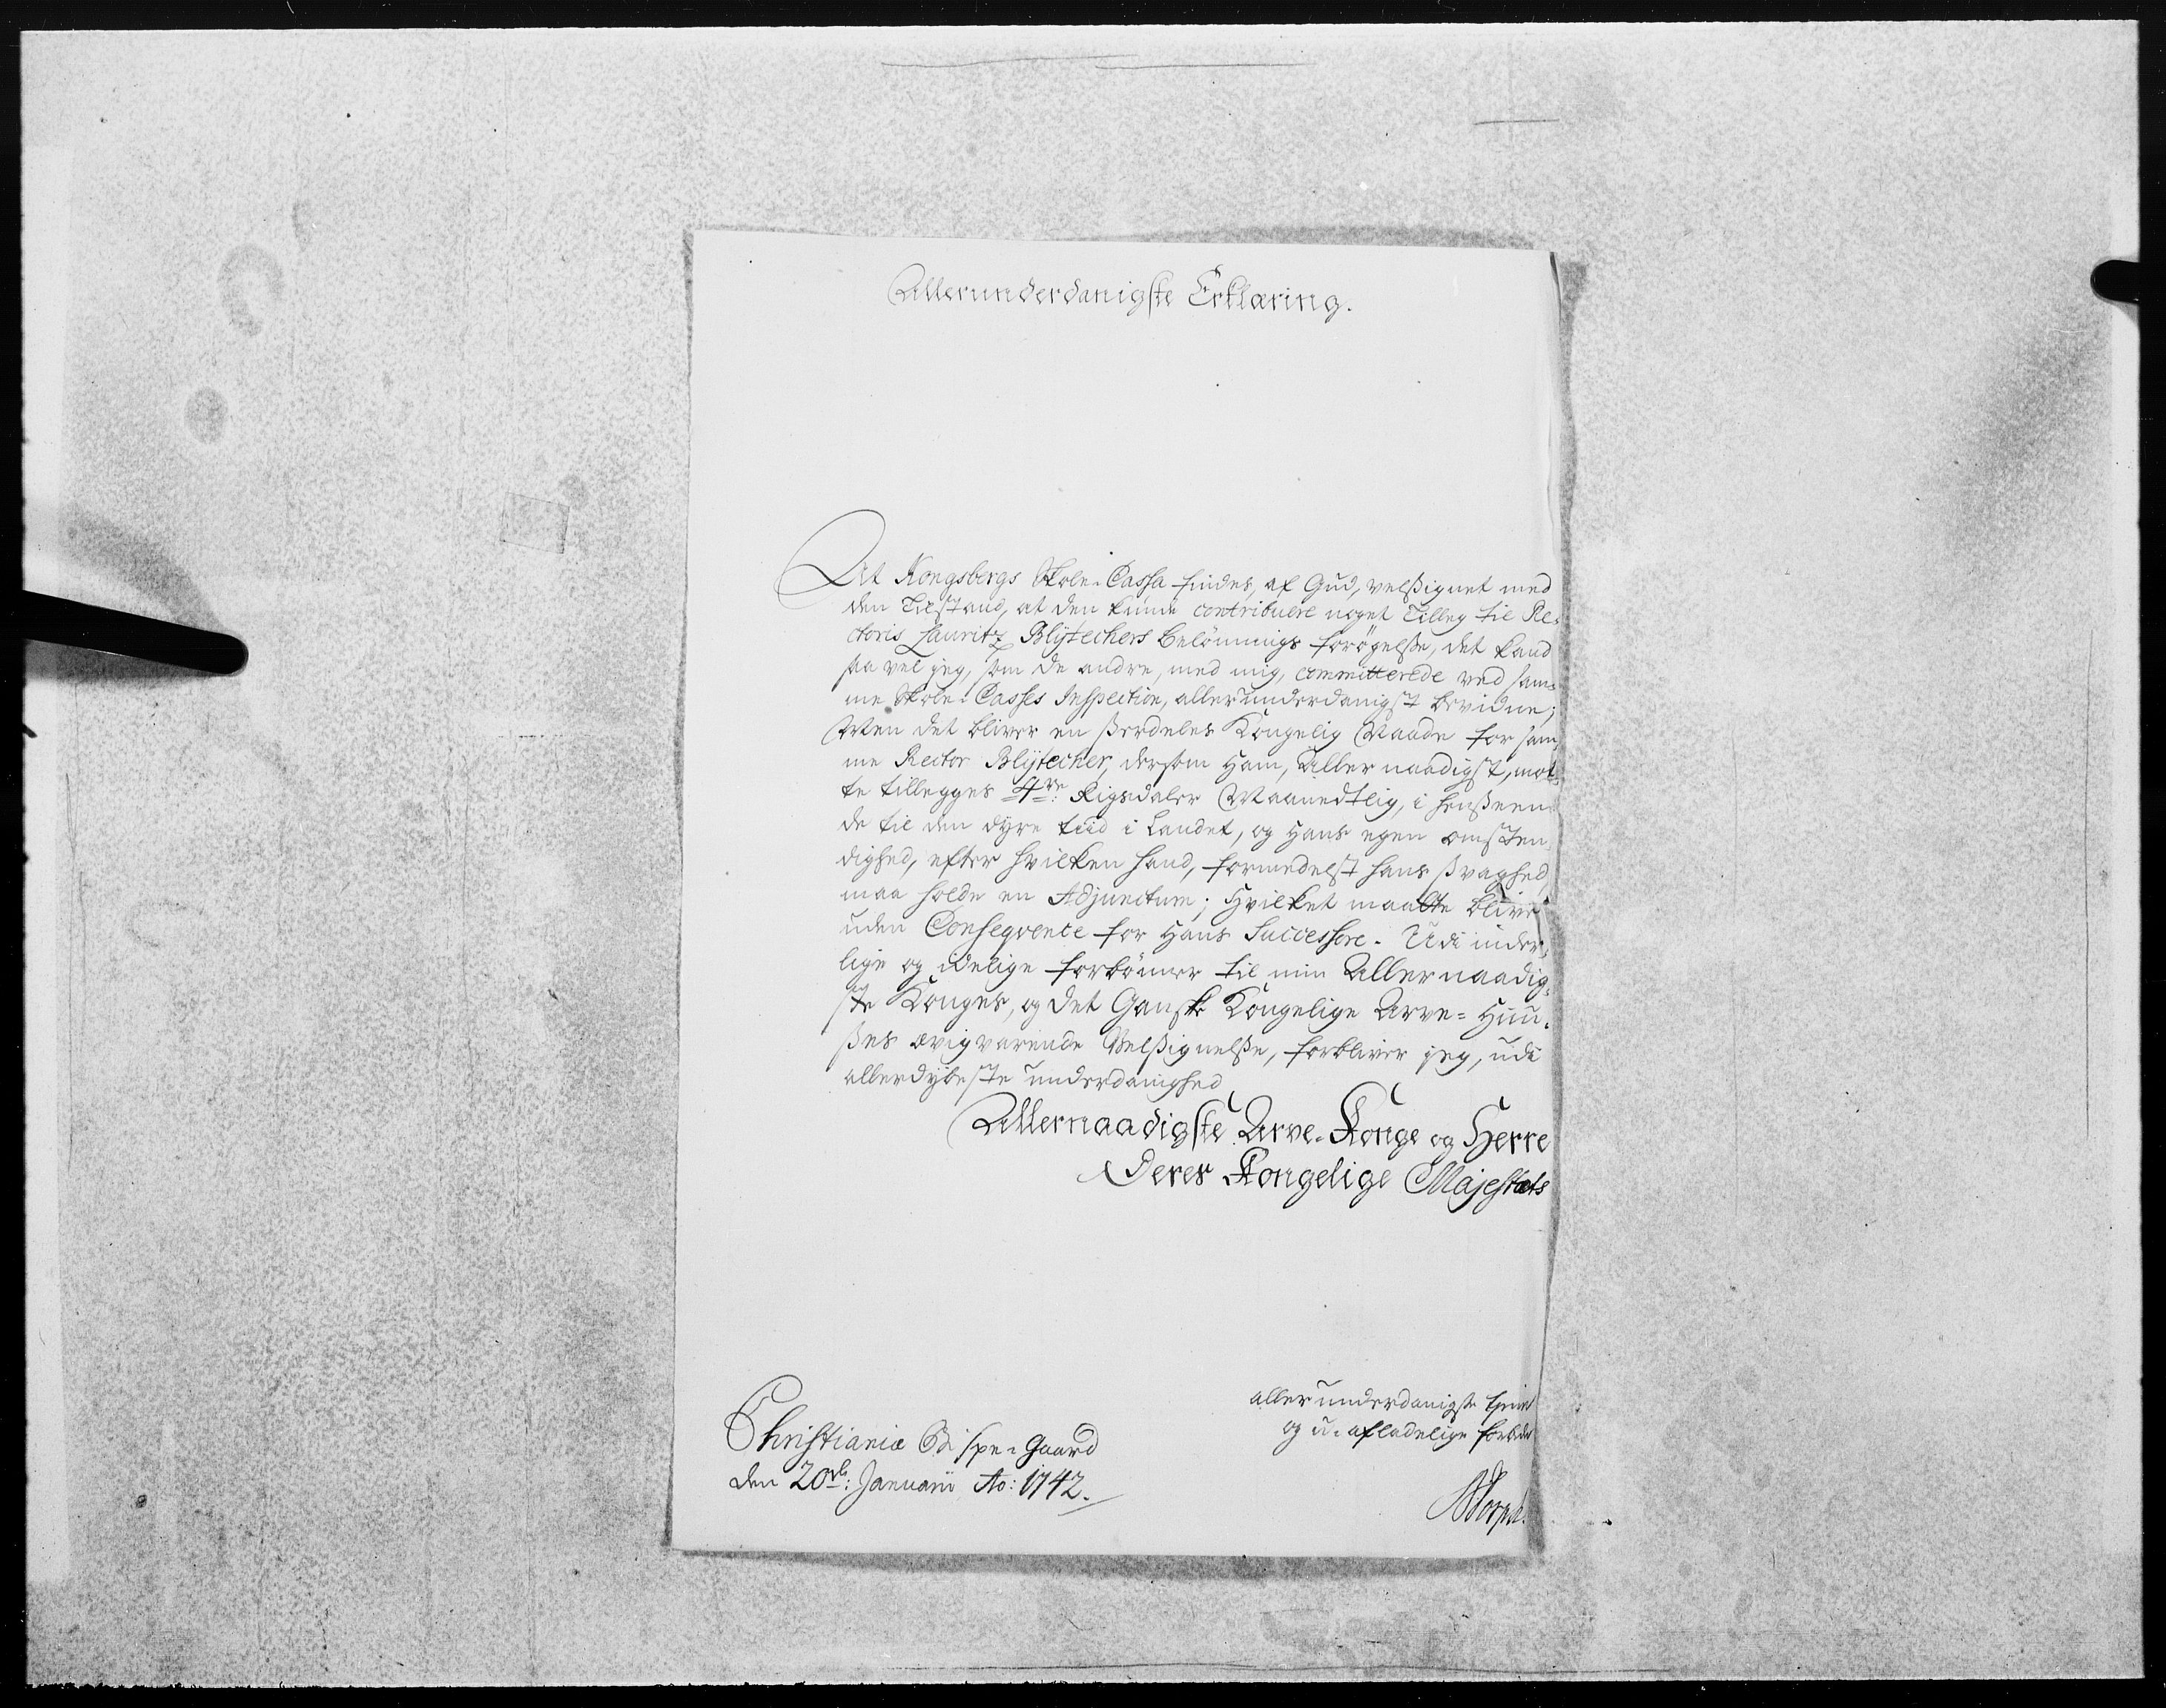 Allerunderdanigste Erklæring.
At Kongsbergs Skole-Cassa findes, af Gud, velsignet med
den Tilstand, at den kunde contribuere noget Tilleg til Re-
ctoris Lauritz Blytechers belønnings forøgelse, det kand
saa vel jeg, som de andre, med mig, committerede ved sam-
me Skole-Casses Inspection, allerunderdanigst bevidne;
Men det bliver en særdeles Kongelig Naade for sam-
me Rector Blÿtecher, dersom Ham, Aller naadigst, mot-
te tillegges 4re Rigsdaler Maanedtlig, i henseen-
de til den dyre tiid i Landet, og Hans egen omsten-
dighed, efter hvilken hand, formedelst hans svaghed,
maa holde en Adjunctum; Hvilket maatte blive
uden Conseqvence for Hans Successore. Udi inder-
lige og idelige forbønner til min Allernaadig-
ste Konges, og det Ganske Kongelige Arve-Huu-
ses ævigvarende Velsignelse, forbliver jeg, udi
allerdybeste underdanighed
Allernaadigste Arve-Konge og Herre
Deres Kongelige Majestæts
allerunderdanigste tiener
og u-afladelige forbeder
Christianiæ Bispe-Gaard
den 20de: Januarii Ao: 1742.
NDorph.